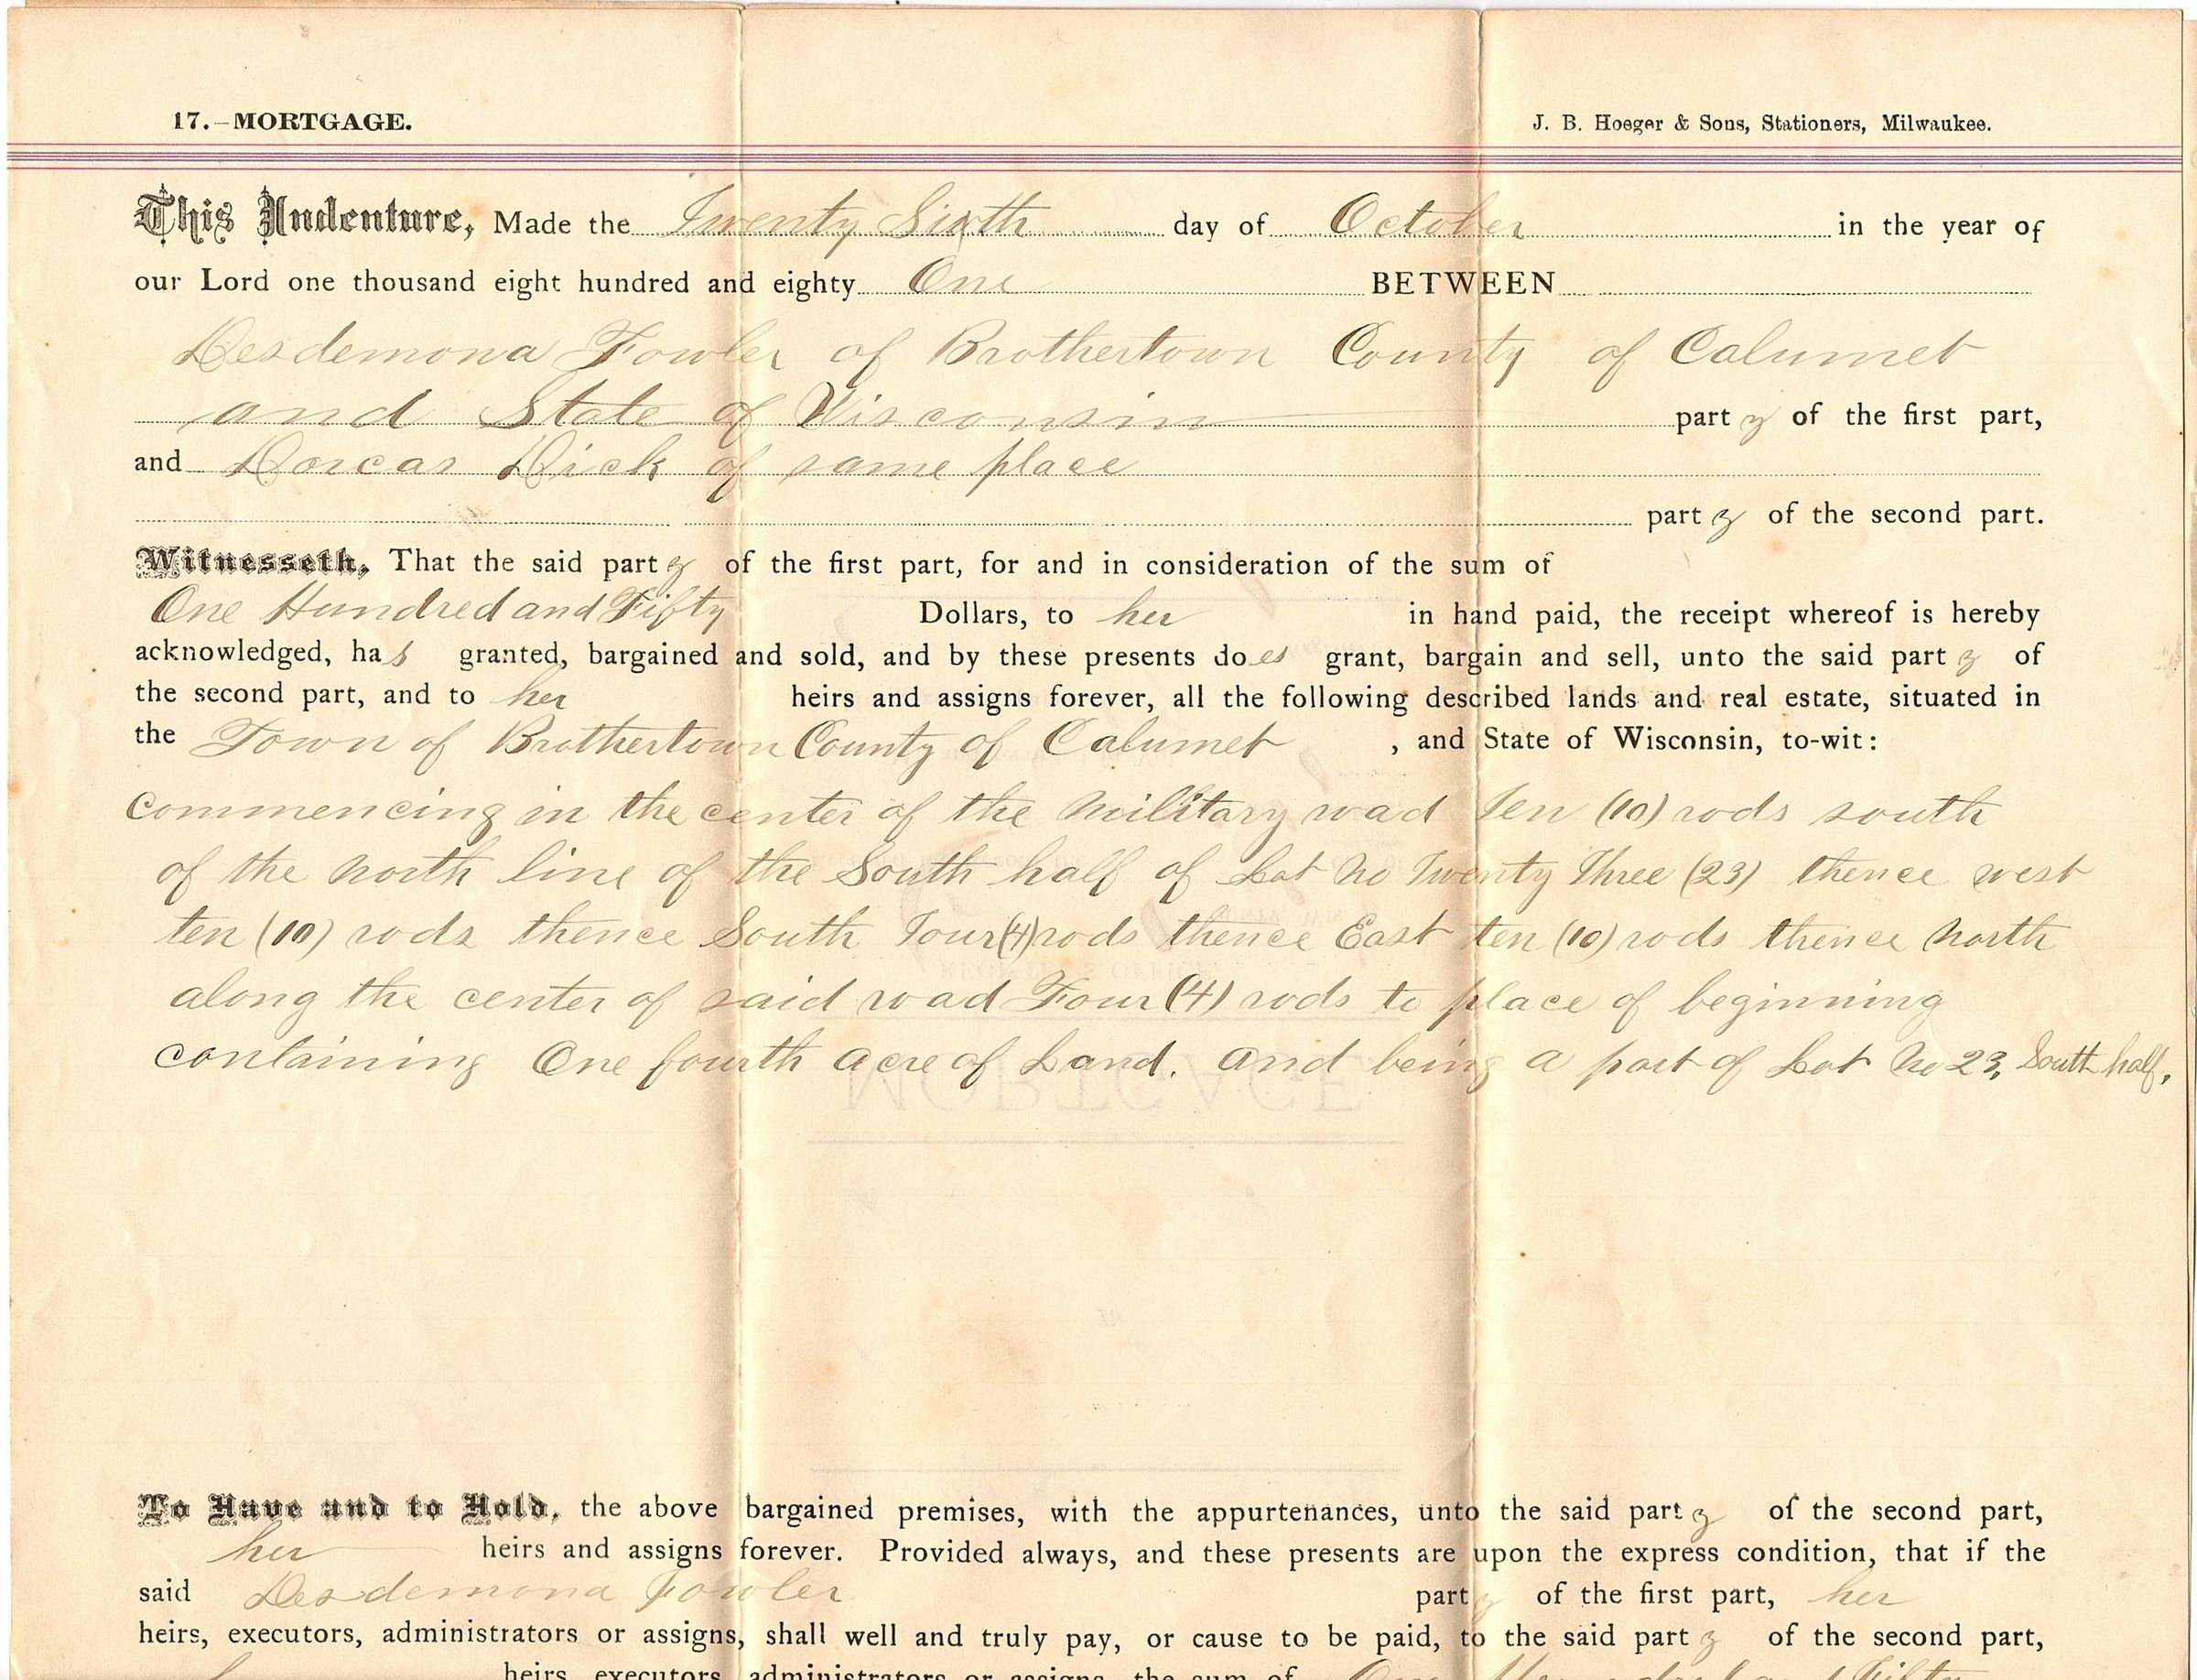 17.–MORTGAGE. J. B. Hoeger & Sons, Stationers, Milwaukee.
This Indenture, Made the Twenty Sixth day of October in the year of
our Lord one thousand eight hundred and eighty One BETWEEN
Desdemona Fowler of Brothertown County of Calumet
and State of Wisconsin party of the first part,
and Dorcas Dick of same place
party of the second part.
Witnesseth, That the said party of the first part, for and in consideration of the sum of
One Hundred and Fifty Dollars, to her in hand paid, the receipt whereof is hereby
acknowledged, has granted, bargained and sold, and by these presents does grant, bargain and sell, unto the said party of
the second part, and to her heirs and assigns forever, all the following described lands and real estate, situated in
the Town of Brothertown County of Calumet , and State of Wisconsin, to-wit:
Commencing in the center of the Military road ten (10) rods south
of the North line of the South half of Lot No Twenty Three (23) thence west
ten (10) rods thence South Four (4) rods thence East ten (10) rods thence North
along the center of said road Four (4) rods to place of beginning
containing One fourth acre of Land. and being a part of Lot No 23, South half,
MORTGAGE
To Have and to Hold, the above bargained premises, with the appurtenances, unto the said party of the second part,
her heirs and assigns forever. Provided always, and these presents are upon the express condition, that if the
said Desdemona Fowler party of the first part, her
heirs, executors, administrators or assigns, shall well and truly pay, or cause to be paid, to the said party of the second part,
heirs, executors, administrators or assigns, the sum of One Hundred and Fifty